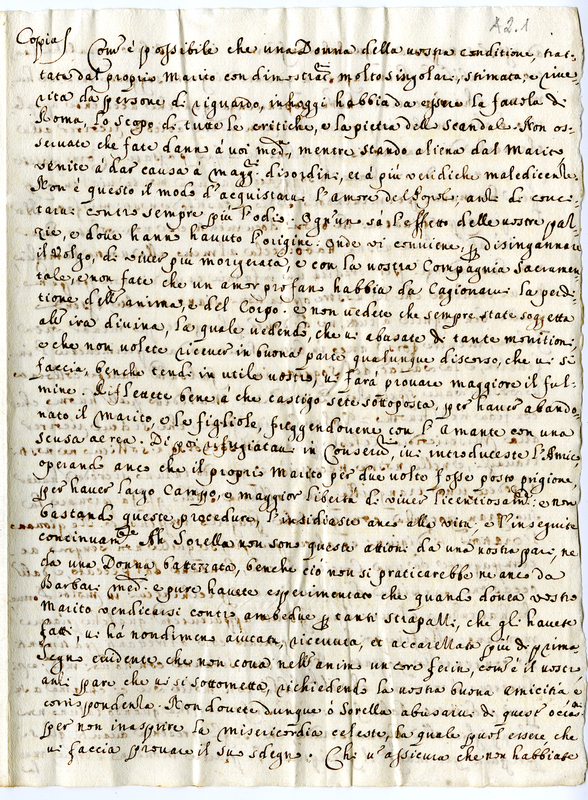 A2.1
Copia
Com' è possibile che una Donna della vostra conditione, trat-
tata dal proprio Marito con dimostraz.ni molto singolari, stimata, e rive-
rita da persone di riguardo, in hoggi habbia da essere la favola di
Roma, lo scopo di tutte le critiche, e la pietra dello scandalo. Non os-
servate che fate danno à voi med.a, mentre stando aliena dal Marito
venite à dar causa à magg.ri disordini, et à più veridiche maledicenze.
Non è questo il modo d'acquistarvi l'amore del Popolo; anzi di conci-
tarvi contro sempre più l'odio. Ogn'un sà l'effetto delle vostre paz-
zie, e dove hanno havuto l'origine. Onde vi conviene, p disingannare
il Volgo, di viver più morigerata, e con la vostra Compagnia Sacramen-
tale, e non fate che un amor profano habbia da cagionarvi la perdi-
tione dell'anima, e del Corpo. e non vedete che sempre state soggetta
all'ira divina, la quale vedendo, che vi abusate di tante monitioni,
e che non volete ricever in buona parte qualunque discorso, che vi si
faccia, benche tenda in utile vostro, vi farà provare maggiore il ful-
mine. Riflettete bene à che castigo sete sottoposta, per haver abando-
nato il Marito, e le figliole, fuggendovene con l'Amante con una
scusa aerea. Di poi refugiatavi in Conserv.rio, ivi introduceste l'Amico
operando anco che il proprio Marito per due volte fosse posto prigione
per haver largo Campo, e maggior libertà di viver licentiosam.te: e non
bastando queste procedure, l'insidiaste anco alla vita, e l'inseguite
continuam.te Ah Sorella non sono queste attioni da una vostra pari, ne
da una Donna battezzata, benche ciò non si praticarebbe ne anco da
Barbari med.i e pure havete esperimentato che quando doveva vostro
Marito vendicarsi contro ambedue p tanti strapazzi, che gli havete
fatti, vi hà nondimeno aiutata, ricevuta, et accarezzata più di prima
segno evidente che non cova nell'animo un core ferin, com'è il vostro
anzi pare che vi si sottometta, richiedendo la vostra buona amicitia e
corrispondenza. Non dovete dunque ò Sorella abusarvi di quest'occ.ne
per non inasprire la misericordia celeste, la quale puol essere che
vi faccia provare il suo sdegno. Chi v'assicura che non habbiate